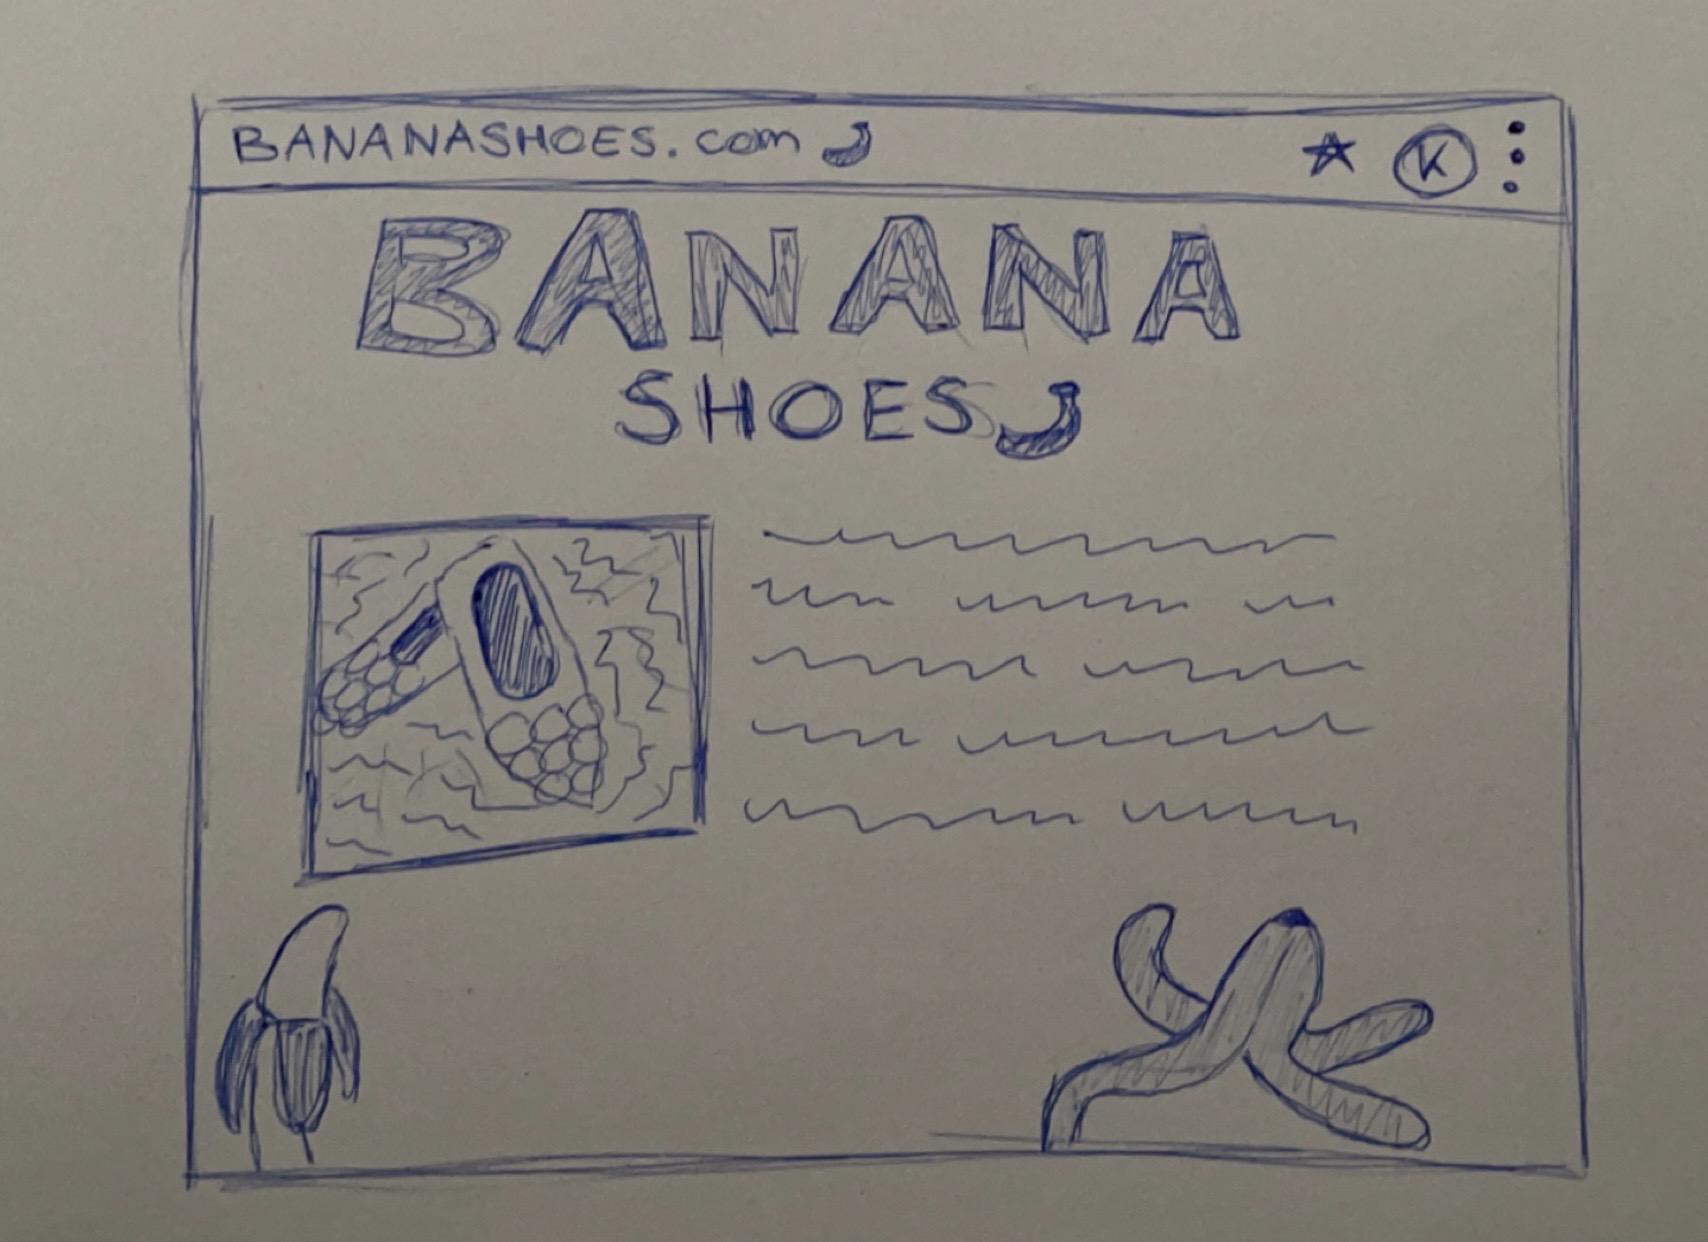 BANANASHOES.com
K
BANANA
SHOES